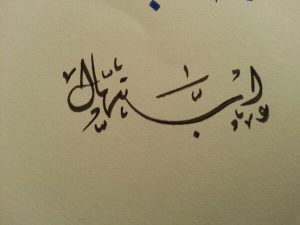 ابتهال